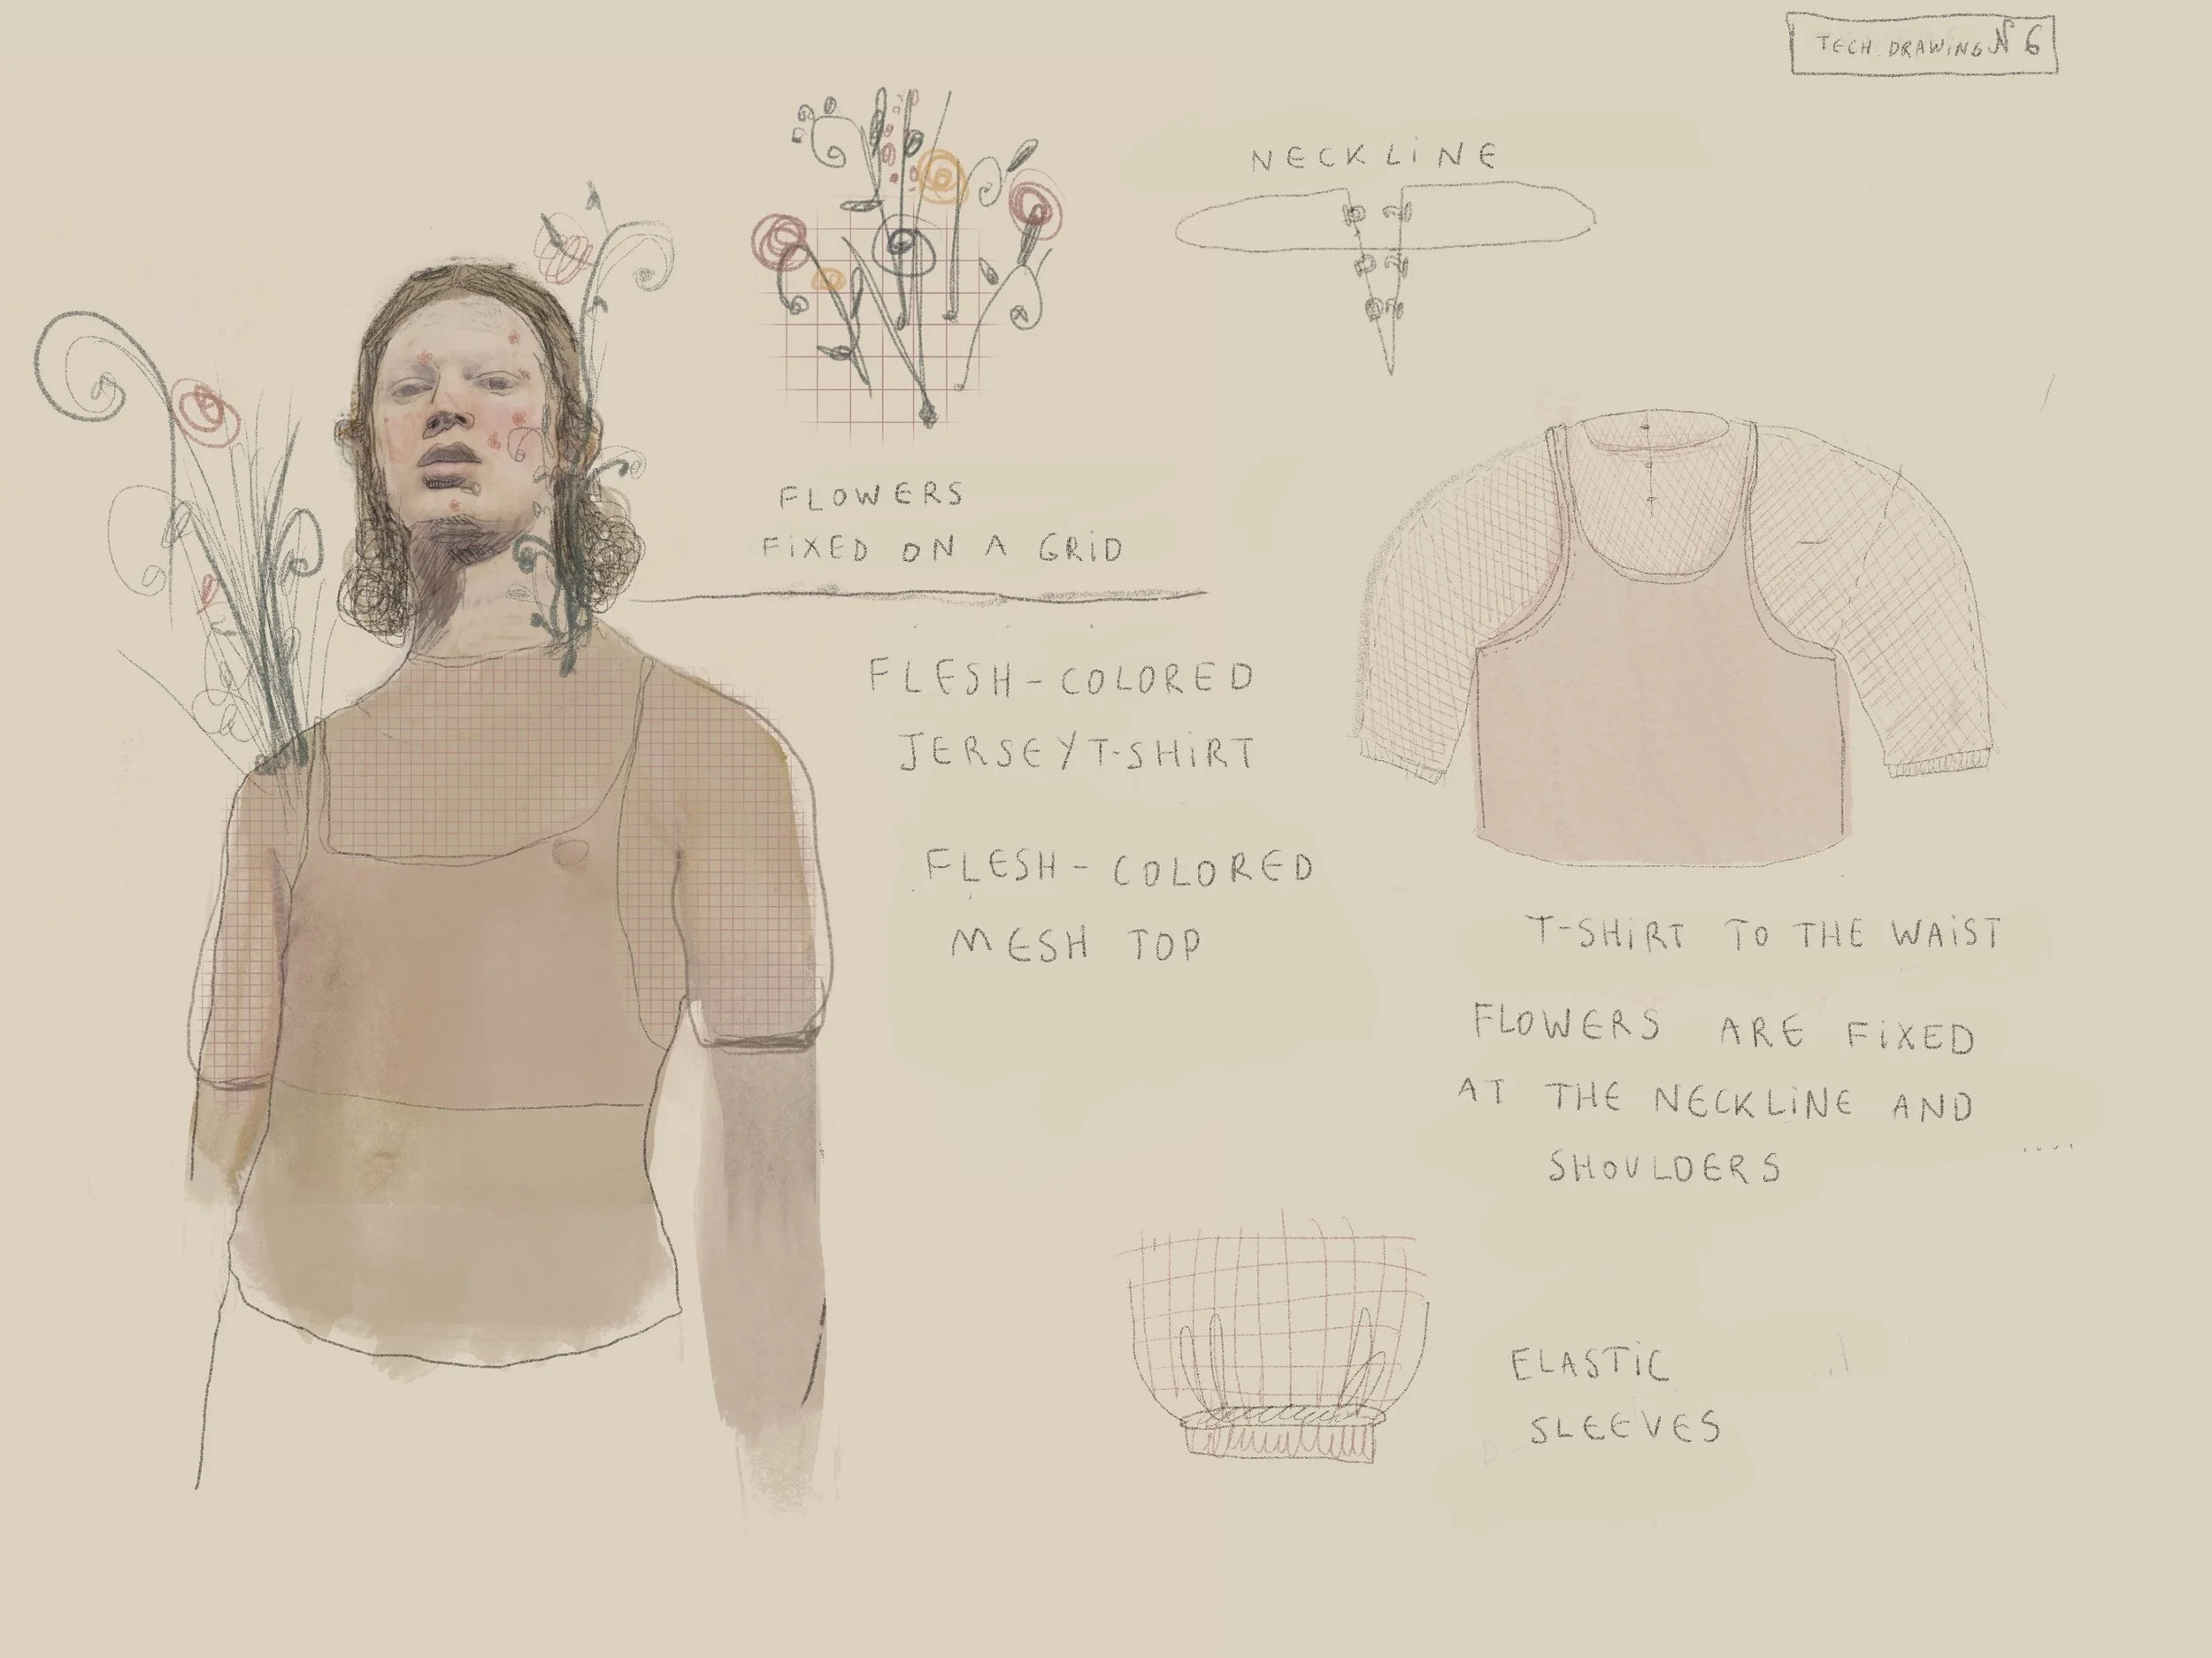 TECH. DRAWING N 6
NECKLINE
FLOWERS
FIXED ON A GRID
FLESH-COLORED
JERSEY T-SHIRT
FLESH-COLORED
MESH TOP
T-SHIRT TO THE WAIST
FLOWERS ARE FIXED
AT THE NECKLINE AND
SHOULDERS
ELASTIC
SLEEVES